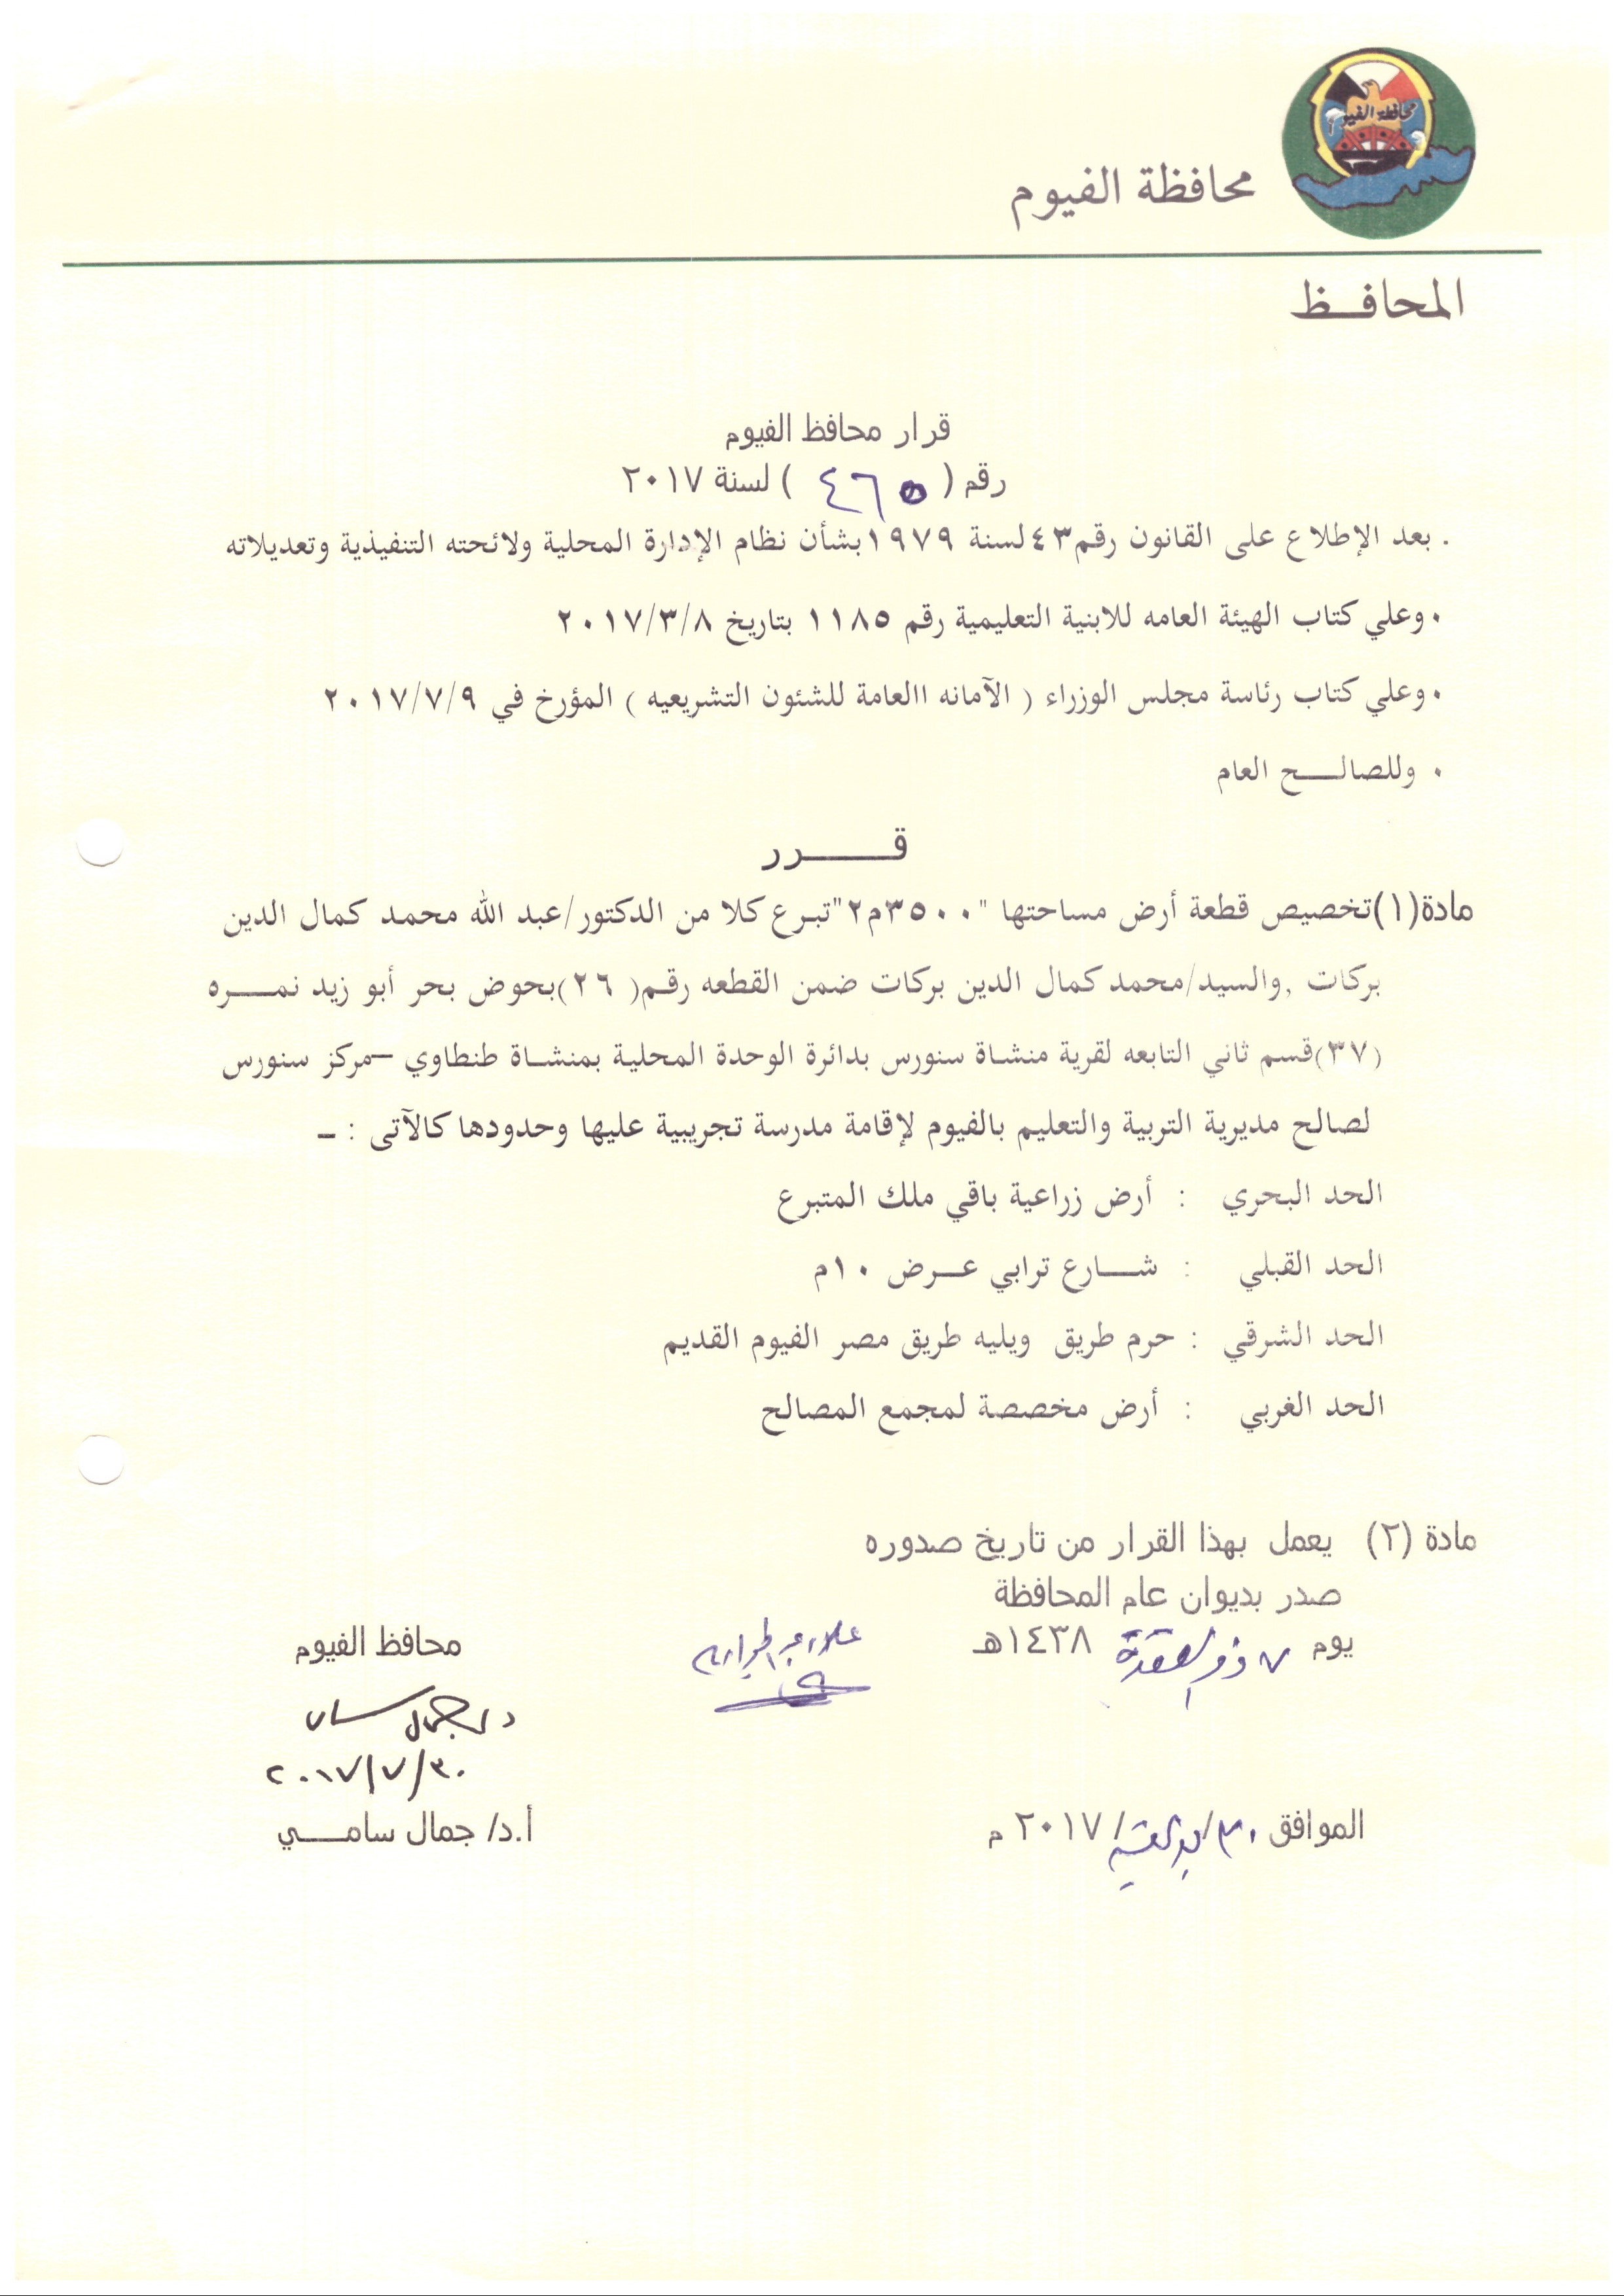 محافظة الفيوم
محافظة الفيوم
المحافـــظ
قرار محافظ الفيوم
رقم ( ٤٦٥ ) لسنة ٢٠١٧
. بعد الإطلاع على القانون رقم ٤٣ لسنة ١٩٧٩ بشأن نظام الإدارة المحلية ولائحته التنفيذية وتعديلاته
٠ وعلي كتاب الهيئة العامه للابنية التعليمية رقم ١١٨٥ بتاريخ ٢٠١٧/٣/٨
٠ وعلي كتاب رئاسة مجلس الوزراء ( الآمانه االعامة للشئون التشريعيه ) المؤرخ في ٢٠١٧/٧/٩
٠ وللصالـــح العام
قــــــرر
مادة(١)تخصيص قطعة أرض مساحتها "٣٥٠٠م٢"تبرع كلا من الدكتور/عبد الله محمد كمال الدين
بركات ,والسيد/محمد كمال الدين بركات ضمن القطعه رقم( ٢٦)بحوض بحر أبو زيد نمـــره
(٣٧)قسم ثاني التابعه لقرية منشاة سنورس بدائرة الوحدة المحلية بمنشاة طنطاوي –مركز سنورس
لصالح مديرية التربية والتعليم بالفيوم لإقامة مدرسة تجريبية عليها وحدودها كالآتى : ـ
الحد البحري : أرض زراعية باقي ملك المتبرع
الحد القبلي : شـــارع ترابي عـــرض ١٠م
الحد الشرقي : حرم طريق ويليه طريق مصر الفيوم القديم
الحد الغربي : أرض مخصصة لمجمع المصالح
مادة (٢) يعمل بهذا القرار من تاريخ صدوره
صدر بديوان عام المحافظة
يوم ٧ ذو القعدة ١٤٣٨هـ
محافظ الفيوم
د. جمال سامى
٢٠١٧/٧/٣٠
الموافق ٣٠/ /٢٠١٧ م
أ.د/ جمال سامـــي